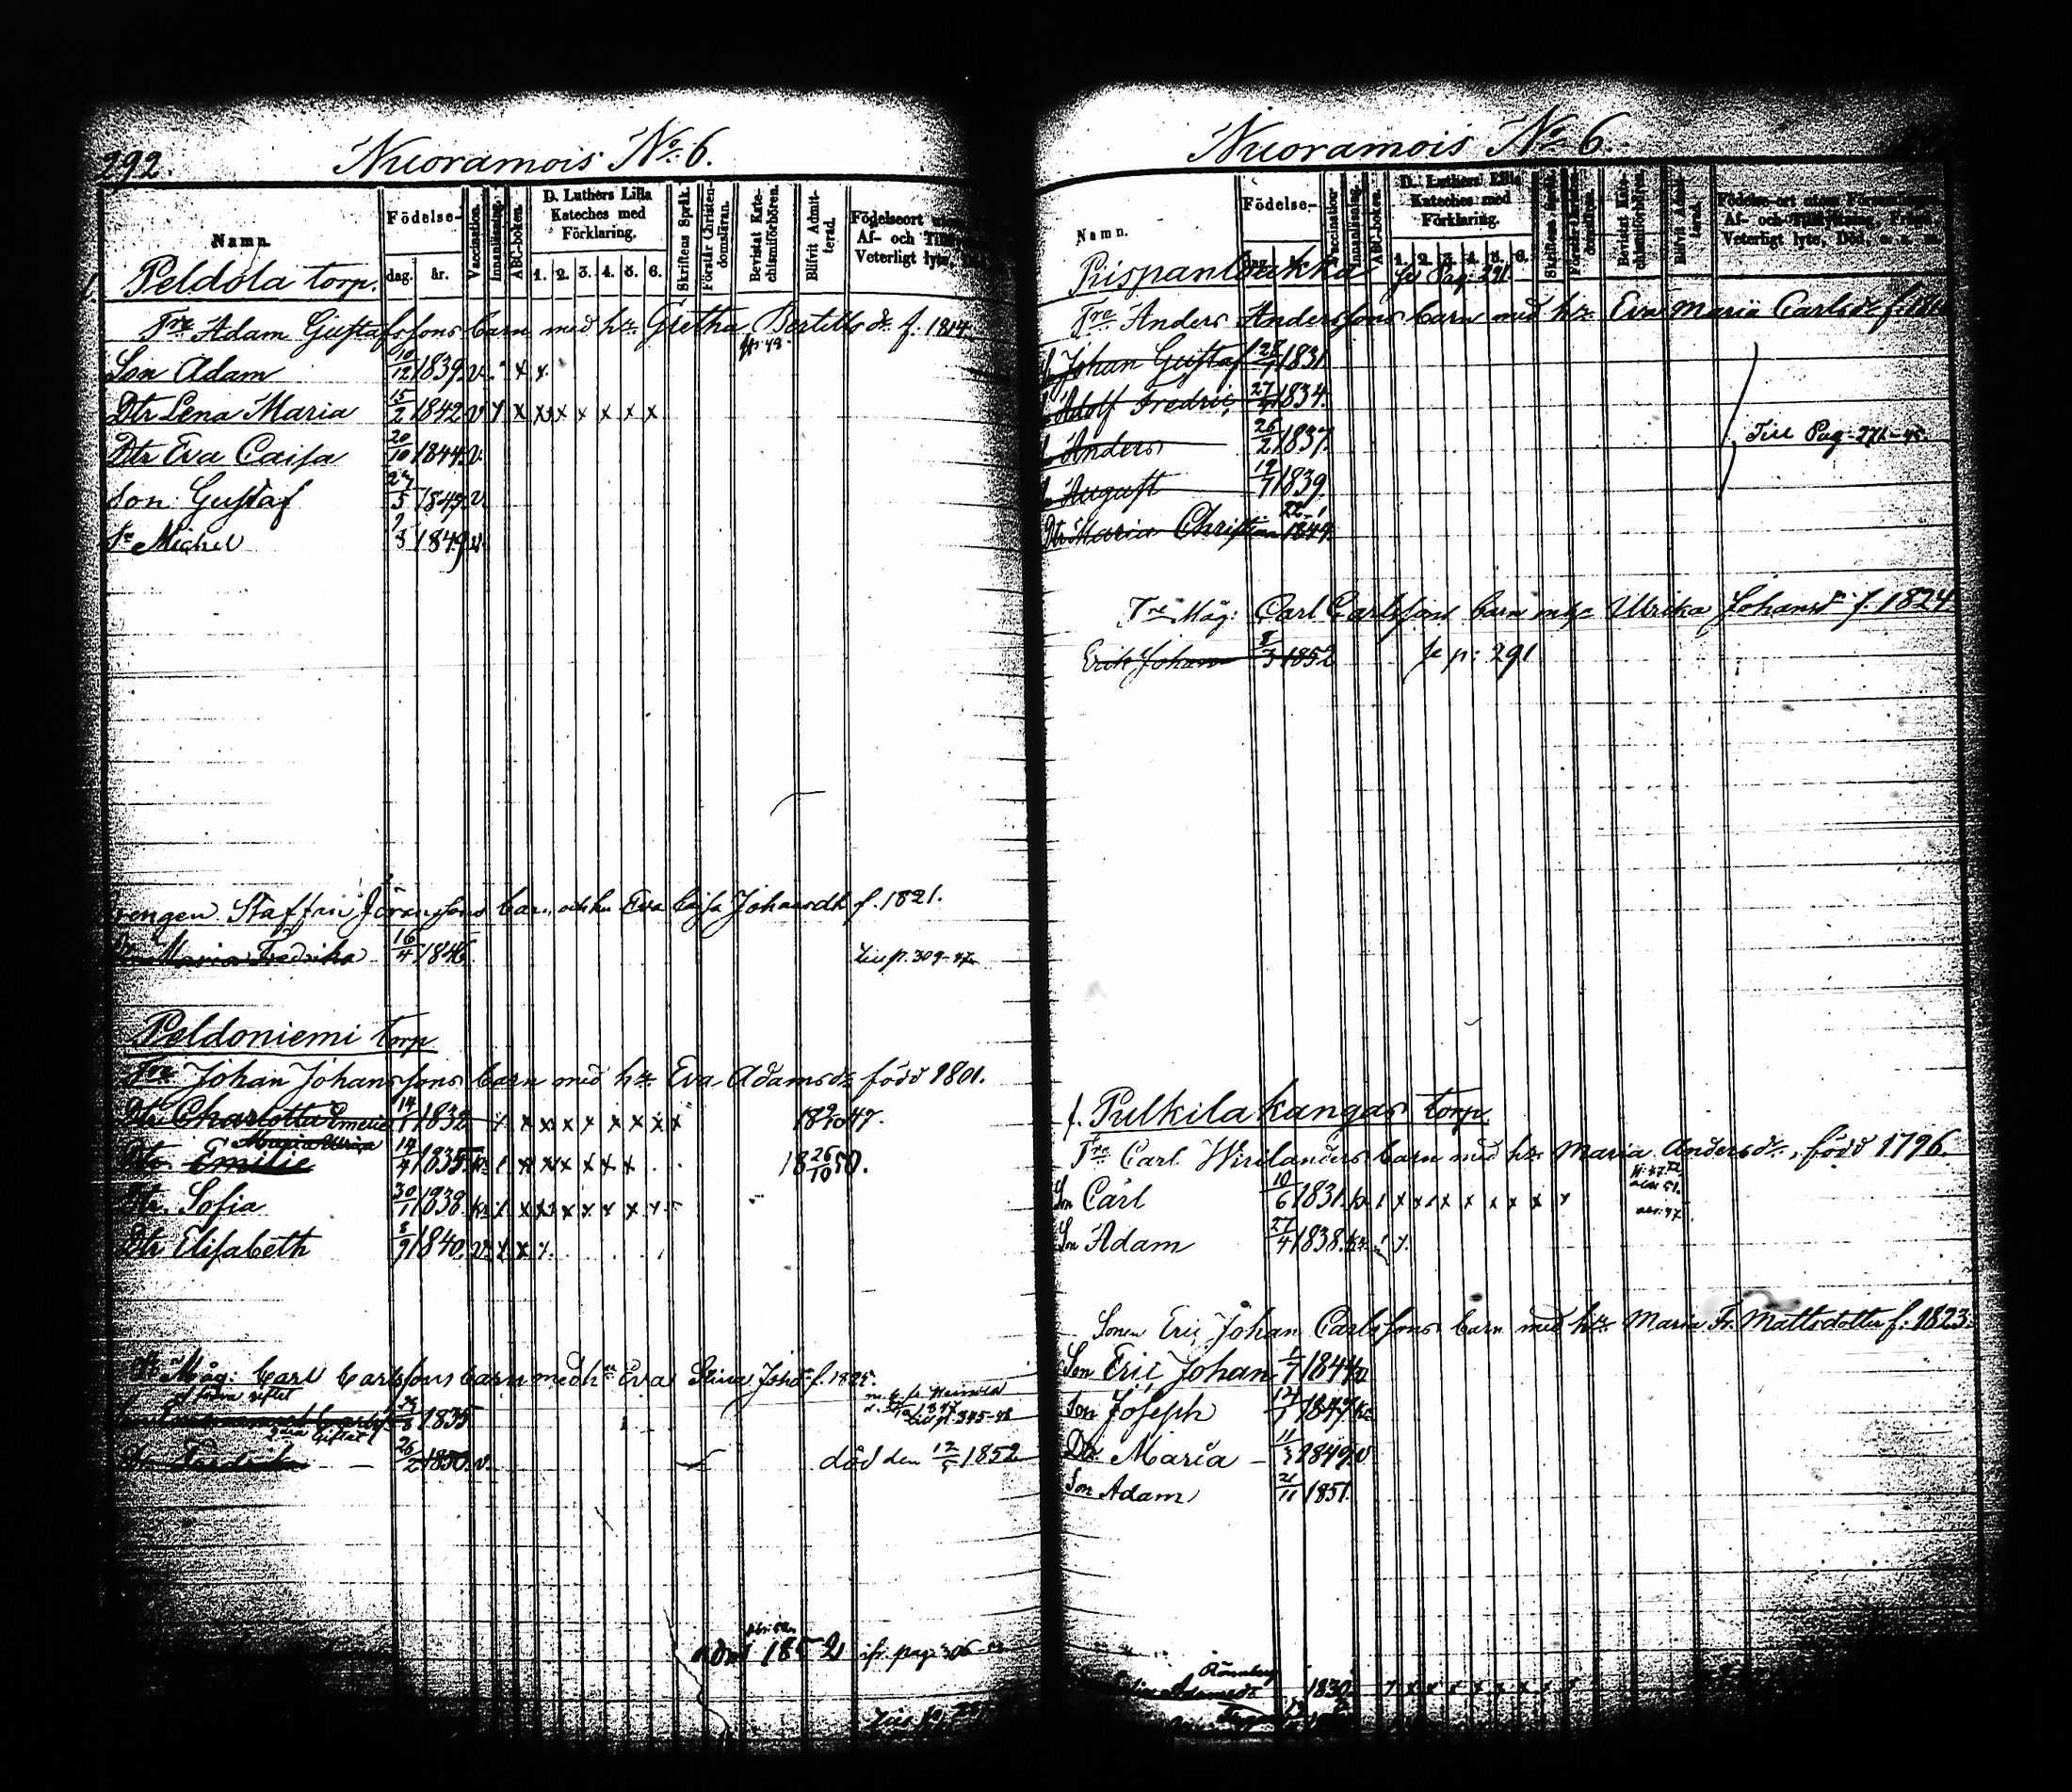 292.
Nuoramois No. 6.
Namn.
Födelse-
dag. år.
Vaccination.
Innanläsning.
ABC-boken.
D. Luthers Lilla Kateches med Förklaring.
1. 2. 3. 4. 5. 6.
Skriftens Språk.
Förstår Christendomsläran.
Bevistat Katechismiförhören.
Blifvit Admitterad.
Födelseort
Af- och
Veterligt lyte,
Peldola torp.
Tre Adam Gustafssons barn med hr Gretha Bertilsdr f. 1814
Son Adam 10/12 1839 v. x x
Dtr Lena Maria 15/2 1842 v x x x x x x x x x
Dtr Eva Caisa 20/10 1844 v.
Son Gustaf 27/5 1847 v.
Sn Michel 2/3 1849 v.
Drengen Staffan Jöranssons barn och hu Eva Caisa Johansdtr f. 1821.
Maria Fredrika 16/4 1846 Till p. 309-47
Peldoniemi torp
Tre Johan Johanssons barn med hr Eva Adamsdr född 1801.
Dtr Charlotta Emelie 14/1 1832 x x x x x x x x x
Maria Ulrica
Dtr Emilie 14/4 1835 x x x x x x x 18 26/10 50.
Dtr. Sofia 30/1 1838 x x x x x x x x
Dtr Elisabeth 8/9 1840 v x x x
Måg: Carl Carlssons barn med hn Eva Stina Johdr f. 1825.
1835 till p. 345-48
2dra Giftet
Fredrik 26/2 1850. v. död den 12/5 1852
adm 1852 pag. 306
Nuoramois No 6.
Namn.
Födelse-
Vaccination
Innanläsning.
ABC-boken.
D. Luthers Lilla Kateches med Förklaring.
1. 2. 3. 4. 5. 6.
Skriftens Språk.
Bevistat Katechismiförhören.
Blifvit Admitterad.
Födelse-ort utom Församlingen,
Af- och Tillflyttning, Frejd,
Veterligt lyte, Död, o. s. m.
Prispanloukka se Pag: 291
Tre Anders Anderssons barn med hr Eva Maria Carlsdr f.
Johan Gustaf 28/1 1831
Adolf Fredric 27 1834.
Anders 26/2 1837. Till Pag. 271-45.
August 19/7 1839.
Dtr Maria Christina 22-1 1844
Tre Måg: Carl Carlssons barn mhr Ulrika Johansdr f. 1824.
Erik Johan 8/3 1852 se p: 291
Pulkilakangas torp.
Tre Carl Wirilanders barn med hr Maria Andersdr, född 1796.
Son Carl 10/6 1831 x x x x x x x x x
Son Adam 27/4 1838.
Sonen Eric Johan Carlssons barn med hr Maria Fr. Mattsdotter f. 1823.
Son Eric Johan 1/7 1844 v
Son Joseph 12/1 1847
Dtr Maria 11/3 1849 v
Son Adam 21/11 1851.
Rönnberg
Adamsdr 1830 x x x x x x x x x